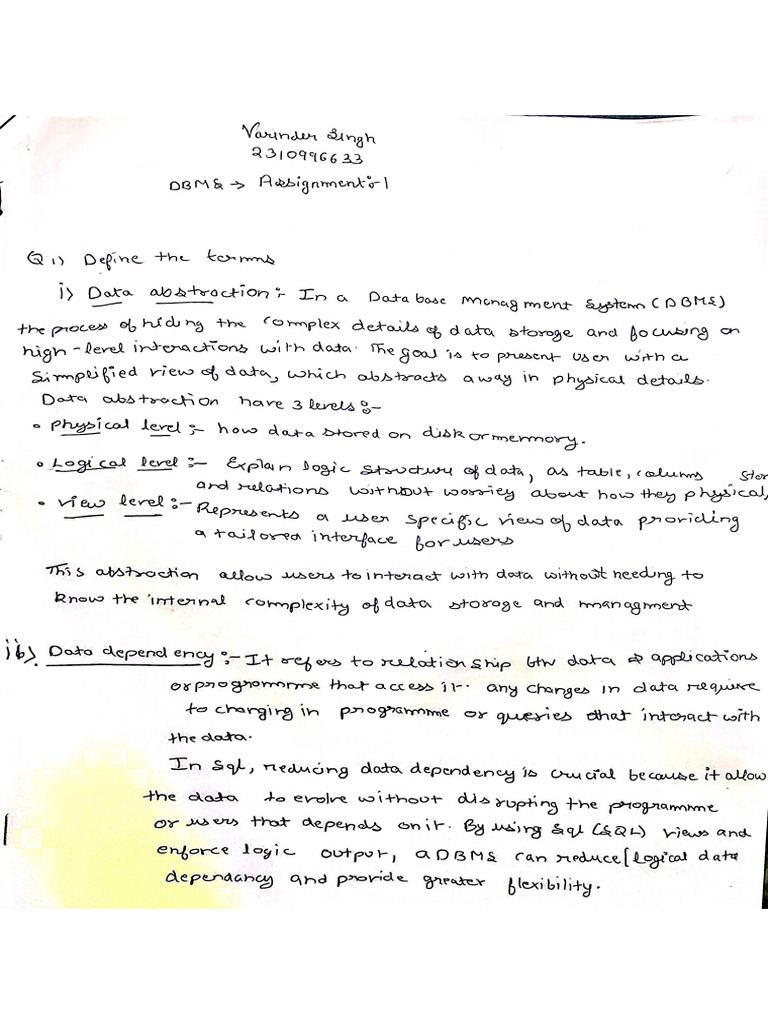 Varinder Singh
2310996633
DBMS → Assignment:-1
Q1) Define the terms
i) Data abstraction:- In a Database Managment System (DBMS)
the process of hiding the complex details of data storage and focusing on
high-level interactions with data. The goal is to present user with a
simplified view of data, which abstracts away in physical details.
Data abstraction have 3 levels:-
• Physical level:- how data stored on disk or memory.
• Logical level:- Explain logic structure of data, as table, columns stor
and relations without worriey about how they physical,
• view level:- Represents a user specific view of data providing
a tailored interface for users
This abstraction allow users to interact with data without needing to
know the internal complexity of data storage and managment
ib) Data dependency:- It refers to relationship btw data & applications
or programme that access it. any changes in data require
to changing in programme or queries that interact with
the data.
In Sql, reducing data dependency is crucial because it allow
the data to evolve without disrupting the programme
or users that depends on it. By using Sql (SQL) views and
enforce logic output, a DBMS can reduce [logical data
dependancy and provide greater flexibility.